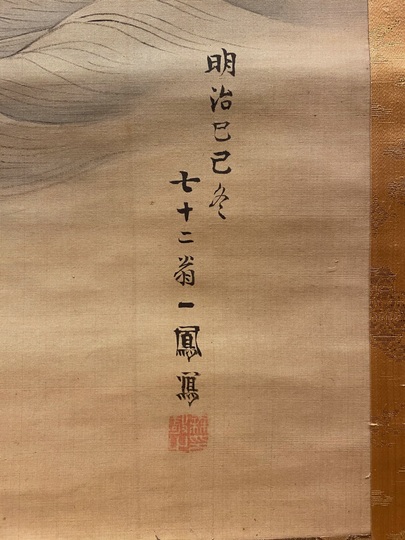 明治巳己冬
七十二翁一鳳寫